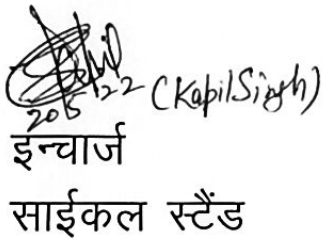 20/5/22 (Kapil Singh)
इन्चार्ज
साईकल स्टैंड